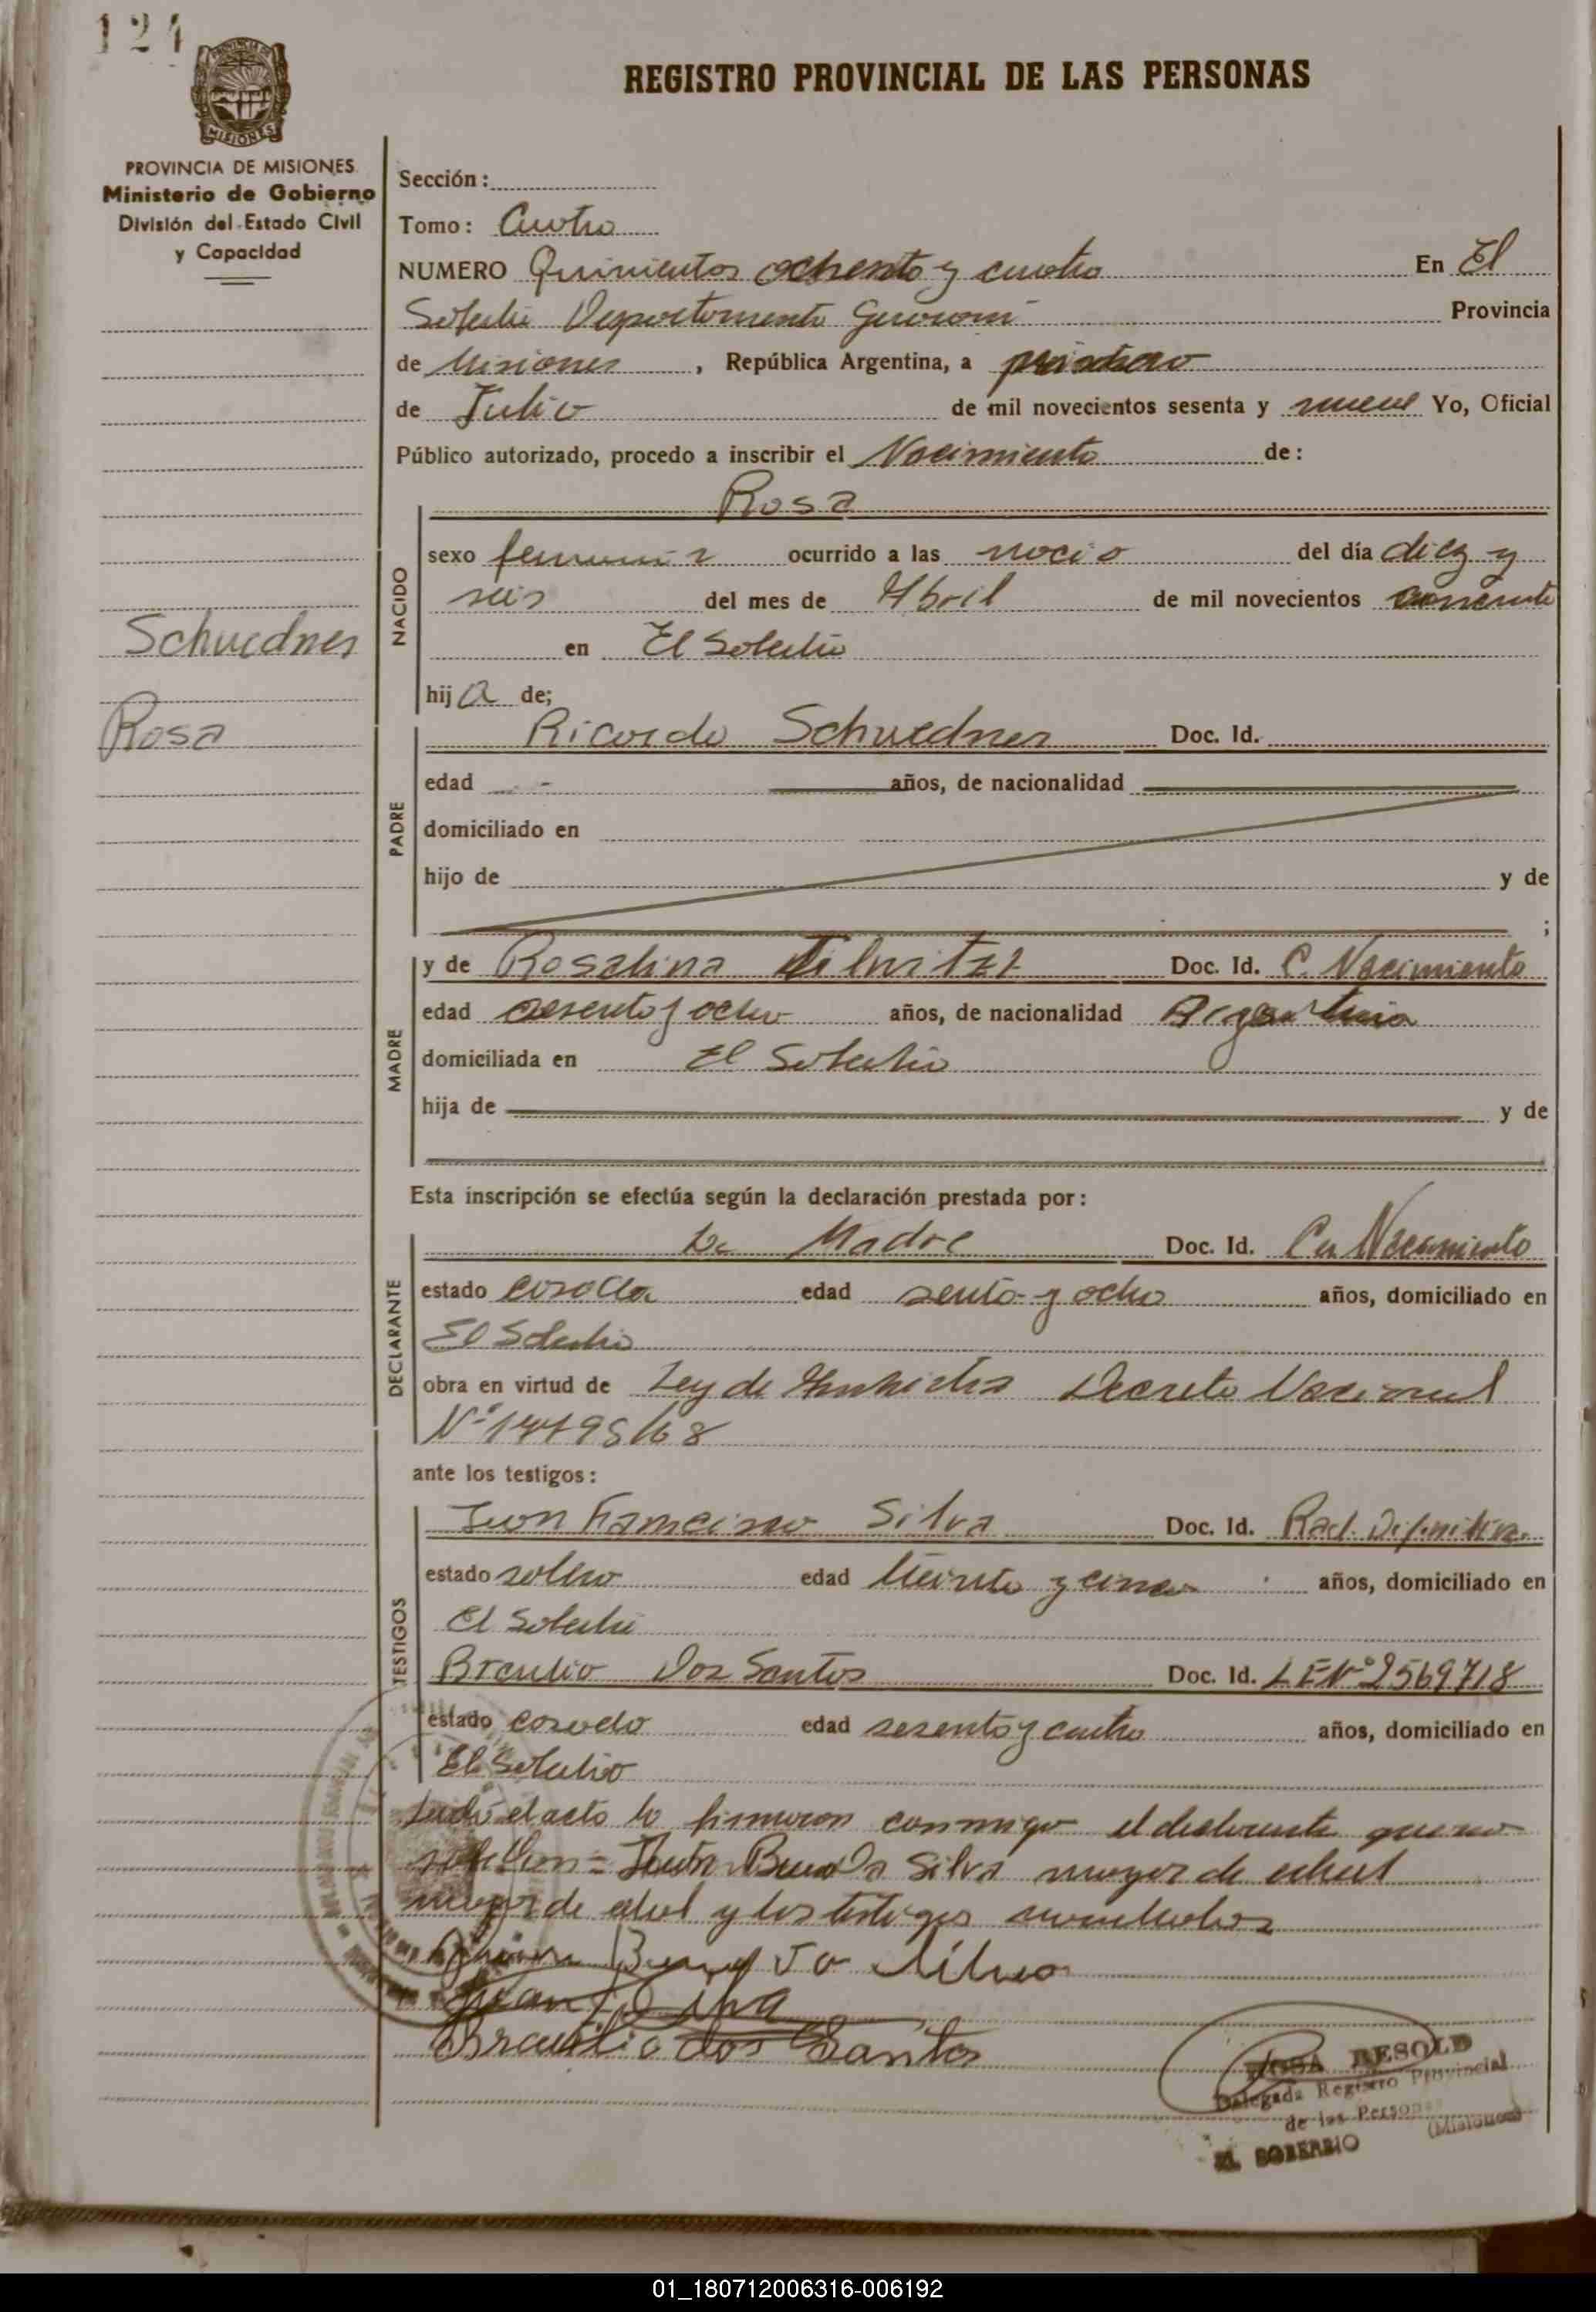 124
REGISTRO PROVINCIAL DE LAS PERSONAS
PROVINCIA DE MISIONES
Ministerio de Gobierno
División del Estado Civil
y Capacidad
Schuedner
Rosa
Sección:
Tomo: Cuatro
NUMERO Quinientos ochenta y cuatro En El
Soberbio Departamento Guaraní Provincia
de Misiones, República Argentina, a primero
de Julio de mil novecientos sesenta y nueve Yo, Oficial
Público autorizado, procedo a inscribir el Nacimiento de:
NACIDO
Rosa
sexo femenin ocurrido a las del día diez y
seis del mes de Abril de mil novecientos
en El Soberbio
hija de;
PADRE
Ricardo Schuedner Doc. Id.
edad años, de nacionalidad
domiciliado en
hijo de y de
;
MADRE
y de Rosalina Doc. Id. C. Nacimiento
edad y ocho años, de nacionalidad Argentina
domiciliada en El Soberbio
hija de y de
Esta inscripción se efectúa según la declaración prestada por:
DECLARANTE
La Madre Doc. Id. Nacimiento
estado casada edad y ocho años, domiciliado en
El Soberbio
obra en virtud de Ley de Decreto Nacional
Nº
ante los testigos:
TESTIGOS
Juan Francisco Silva Doc. Id. Rad. Definitiva
estado soltero edad treinta y cinco años, domiciliado en
El Soberbio
Braulio Dos Santos Doc. Id. LE Nº 2569718
estado casado edad sesenta y cuatro años, domiciliado en
El Soberbio
el acto lo firmaron conmigo el declarante que no
Silva mayor de edad
mayor de edad y los testigos nombrados
Juan Silva
Braulio dos Santos
ROSA RESOLD
Delegada Registro Provincial
de las Personas
(Misiones)
EL SOBERBIO
01_180712006316-006192